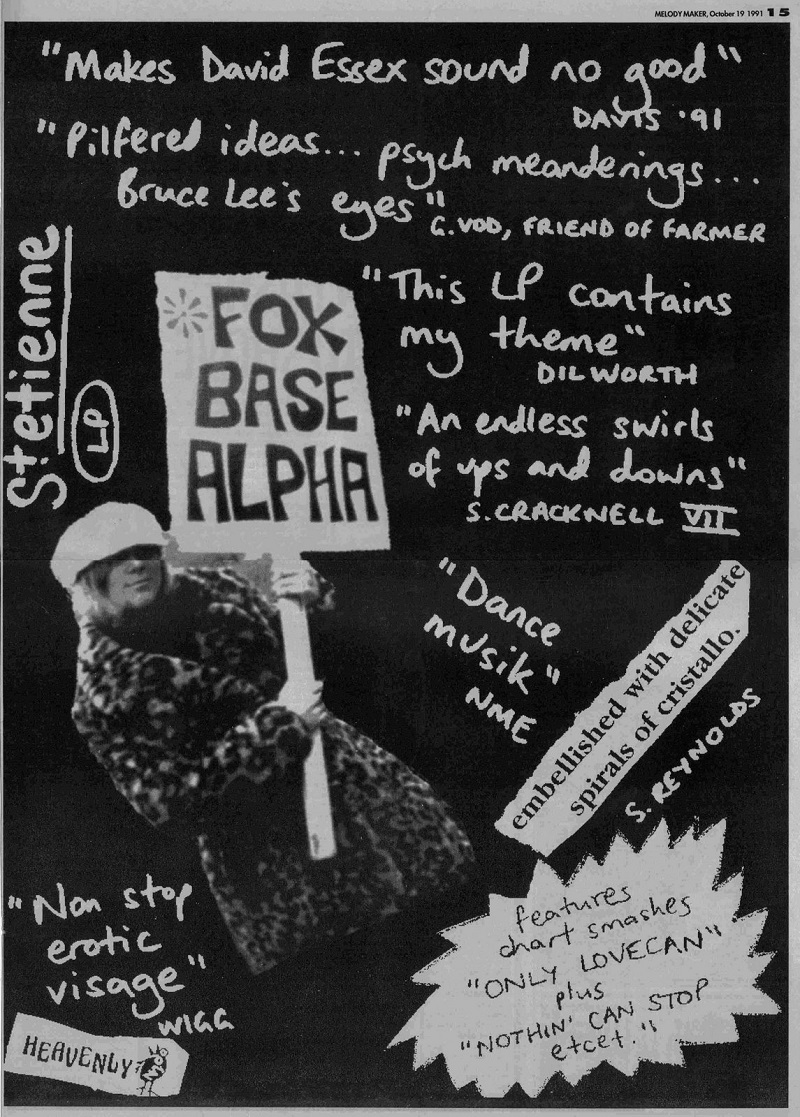 MELODY MAKER, October 19 1991 15
"Makes David Essex sound no good"
DAVIS '91
"Pilfered ideas... psych meanderings...
Bruce Lee's eyes"
G.VOD, FRIEND OF FARMER
St etienne
LP
FOX
BASE
ALPHA
"This LP contains
my theme"
DILWORTH
"An endless swirls
of ups and downs"
S.CRACKNELL VII
"Dance
musik"
NME
embellished with delicate
spirals of cristallo.
S. REYNOLDS
"Non stop
erotic
visage"
WIGG
HEAVENLY
features
chart smashes
"ONLY LOVECAN"
plus
"NOTHIN' CAN STOP
etcet."